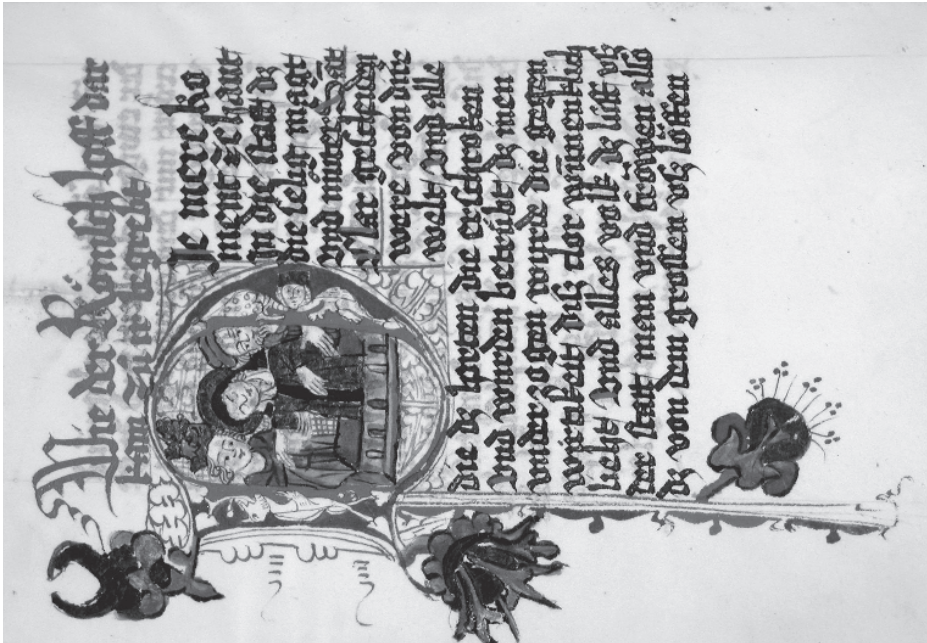 Wie der Römisch hoff dar
kam Zu ir begrebt
DJe mere ko
ment zehant
in die statt dz
die selig magt
vnd müter Sāt
Clar gescheiden
were von dirr
welt / vnd alle
die dz horten die erschroken
vnd wurden betrübt dz inen
vnder zogen wurde die gegen
wirtikait diß clor wunenklich
liecht vnd alles volk dz lieff vß
der statt man vnd fröwen also
dz von dem grossen vß löffen